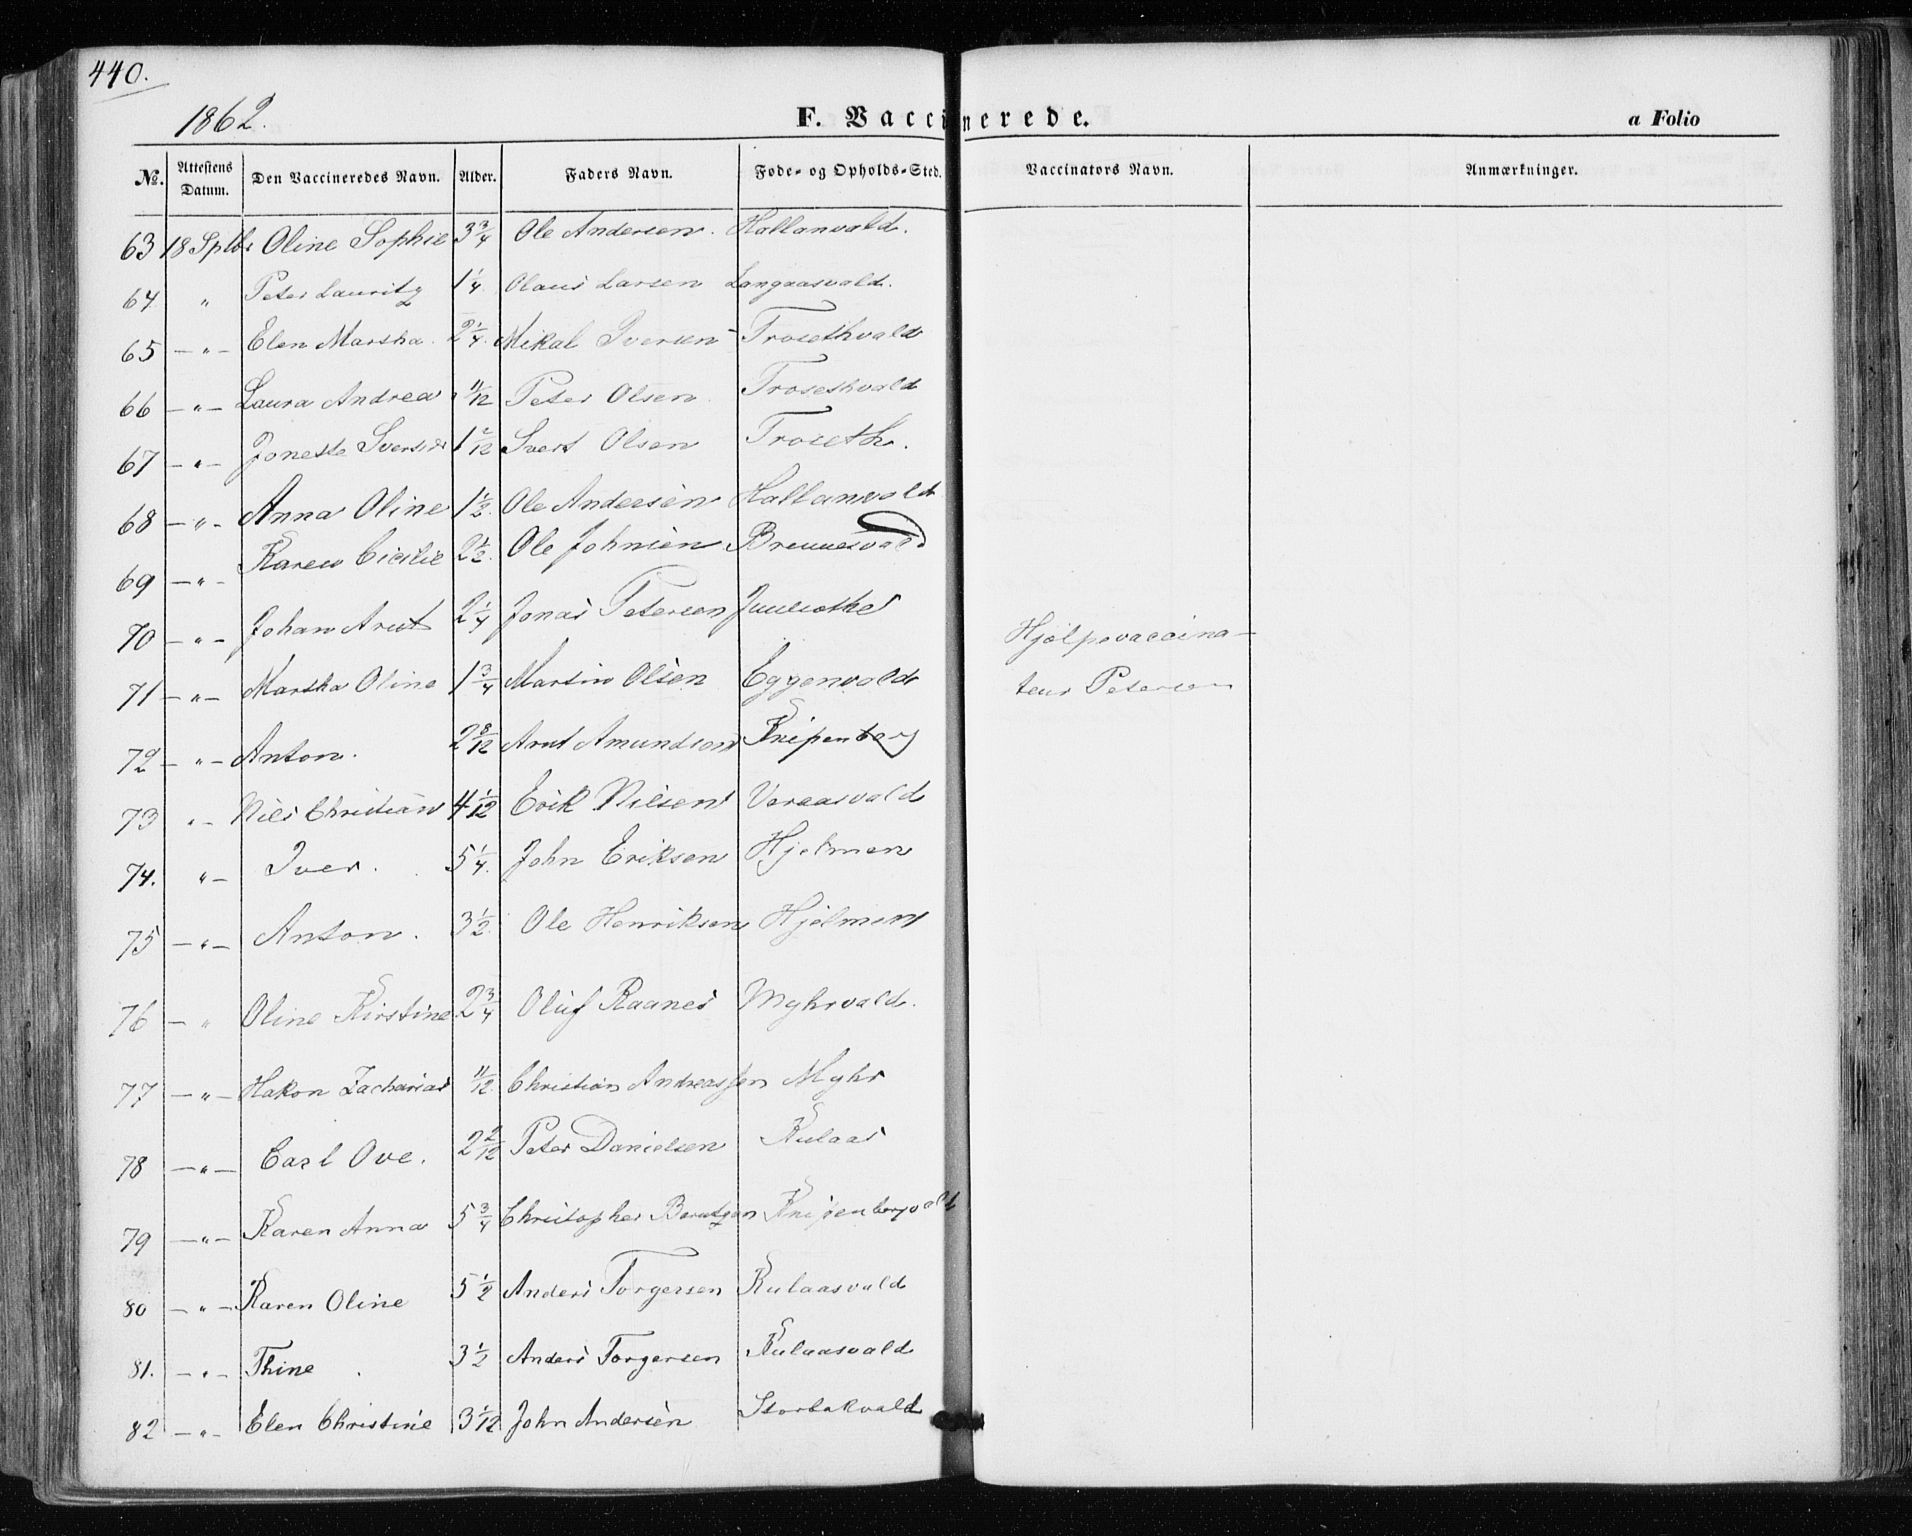 440.
1862.
F. Vaccinerede.
a Folio
No. Attestens Datum. Den Vaccineredes Navn. Alder. Faders Navn. Føde- og Opholds-Sted. Vaccinators Navn. Anmærkninger.
63 18 Sptb: Oline Sophie 3 3/4 Ole Andersen. Hallanvald.
64 " Peter Lauritz 1 1/4. Olaus Larsen Langaasvald.
65 - " - Elen Martha. 2 1/4. Mikal Iversen Trosethvald
66 - " - Laura Andrea 11/12 Peter Olsen Trosethvald
67 - " - Jonette 1 2/12 Ivert Olsen Troseth.
68 - " - Anna Oline 1 1/2. Ole Andersen Hallanvald
69 - " - Karen Cicilie 2 1/2. Ole Johnsen Brennesvald
70 - " - Johan Arnt 2 1/4 Jonas Petersen
71 - " - Martha Oline 1 3/4 Martin Olsen Eggenvald
Hjelpevaccina-
teur Petersen
72 - " - Anton. 2 8/12 Arnt Amundsen Knipenberg
73 " - Nils Christian 4 1/12 Erik Nilsen Veraasvald
74. " - Iver. 5 1/4. John Eriksen Hjelmen
75 - " - Anton. 3 1/2. Ole Henriksen Hjelmen
76 - " Oline Kirstine 2 3/4 Oluf Raanes Myhrvald.
77 - " - Hakon Zacharias 11/12. Christian Andreassen Myhr
78 - " - Carl Ove. 2 2/12 Peter Danielsen Kulaas
79 - " - Karen Anna 5 3/4 Christopher Berntzen Knipenbergvald
80 - " - Karen Oline 5 1/2 Anders Torgersen Kulaasvald
81. - " - Thine 3 1/2 Anders Torgersen Kulaasvald
82 - " - Elen Christine 3 1/12 John Andersen Storbakvald